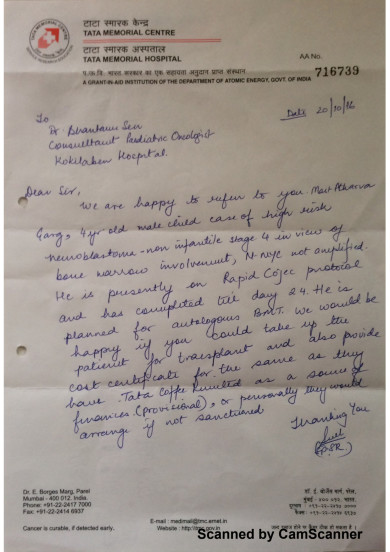 टाटा स्मारक केन्द्र
TATA MEMORIAL CENTRE
टाटा स्मारक अस्पताल
TATA MEMORIAL HOSPITAL
A GRANT-IN-AID INSTITUTION OF THE DEPARTMENT OF ATOMIC ENERGY, GOVT. OF INDIA
AA No.
716739
Date 20/10/16
To
Dr. Shantanu Sen
Consultant Paediatric Oncologist
Kokilaben Hospital.
Dear Sir,
We are happy to refer to you Mast Atharva
Garg, 4 yr old male child case of high risk
neuroblastoma - non infantile stage 4 in view of
bone marrow involvement, N-myc not amplified.
He is presently on Rapid Cojec protocol
and has completed till day 24. He is
planned for autologous BMT. We would be
happy if you could take up the
patient for transplant and also provide
cost certificate for the same as they
have Tata Coffee Limited as a source of
finances (provisional), or personally they would
arrange if not sanctioned
Thanking You
Dr. E. Borges Marg, Parel
Mumbai - 400 012. India.
Phone: +91-22-2417 7000
Fax: +91-22-2414 6937
E-mail : medimail@tmc.ernet.in
Website : http://tmc.gov.in
Cancer is curable, if detected early.
Scanned by CamScanner